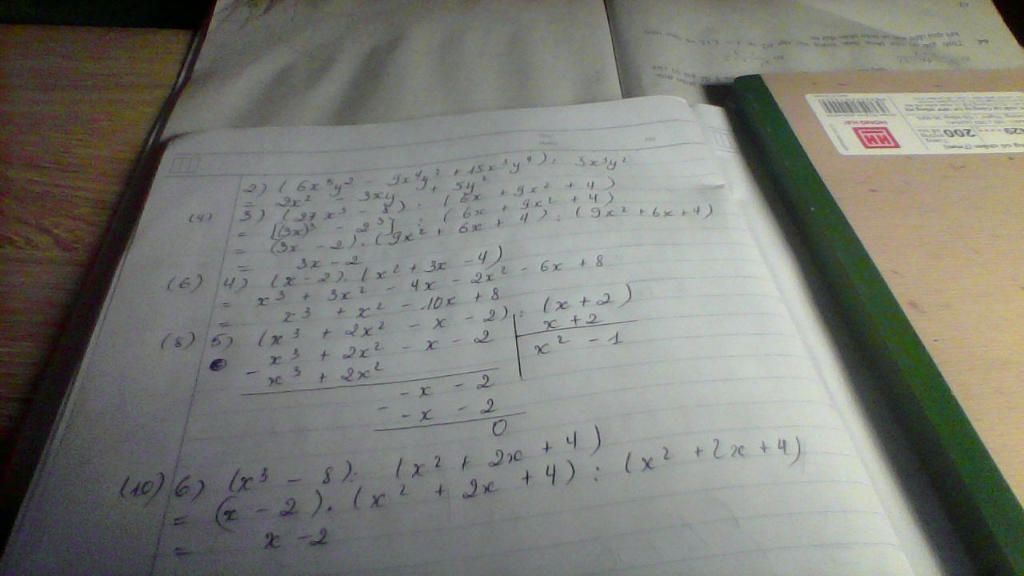 2) (6x⁵y² - 9x⁴y³ + 15x³y⁴) : 3x³y²
= 2x² - 3xy + 5y²
(4) 3) (27x³ - 8) : (6x + 9x² + 4)
= [(3x)³ - 2³] : (6x + 9x² + 4)
= (3x - 2).(9x² + 6x + 4) : (9x² + 6x + 4)
= 3x - 2
(6) 4) (x - 2).(x² + 3x - 4)
= x³ + 3x² - 4x - 2x² - 6x + 8
= x³ + x² - 10x + 8
(8) 5) (x³ + 2x² - x - 2) : (x + 2)
x³ + 2x² - x - 2 | x + 2
- x³ + 2x² | x² - 1
- x - 2
- - x - 2
0
(10) 6) (x³ - 8) : (x² + 2x + 4)
= (x - 2).(x² + 2x + 4) : (x² + 2x + 4)
= x - 2
HH
200